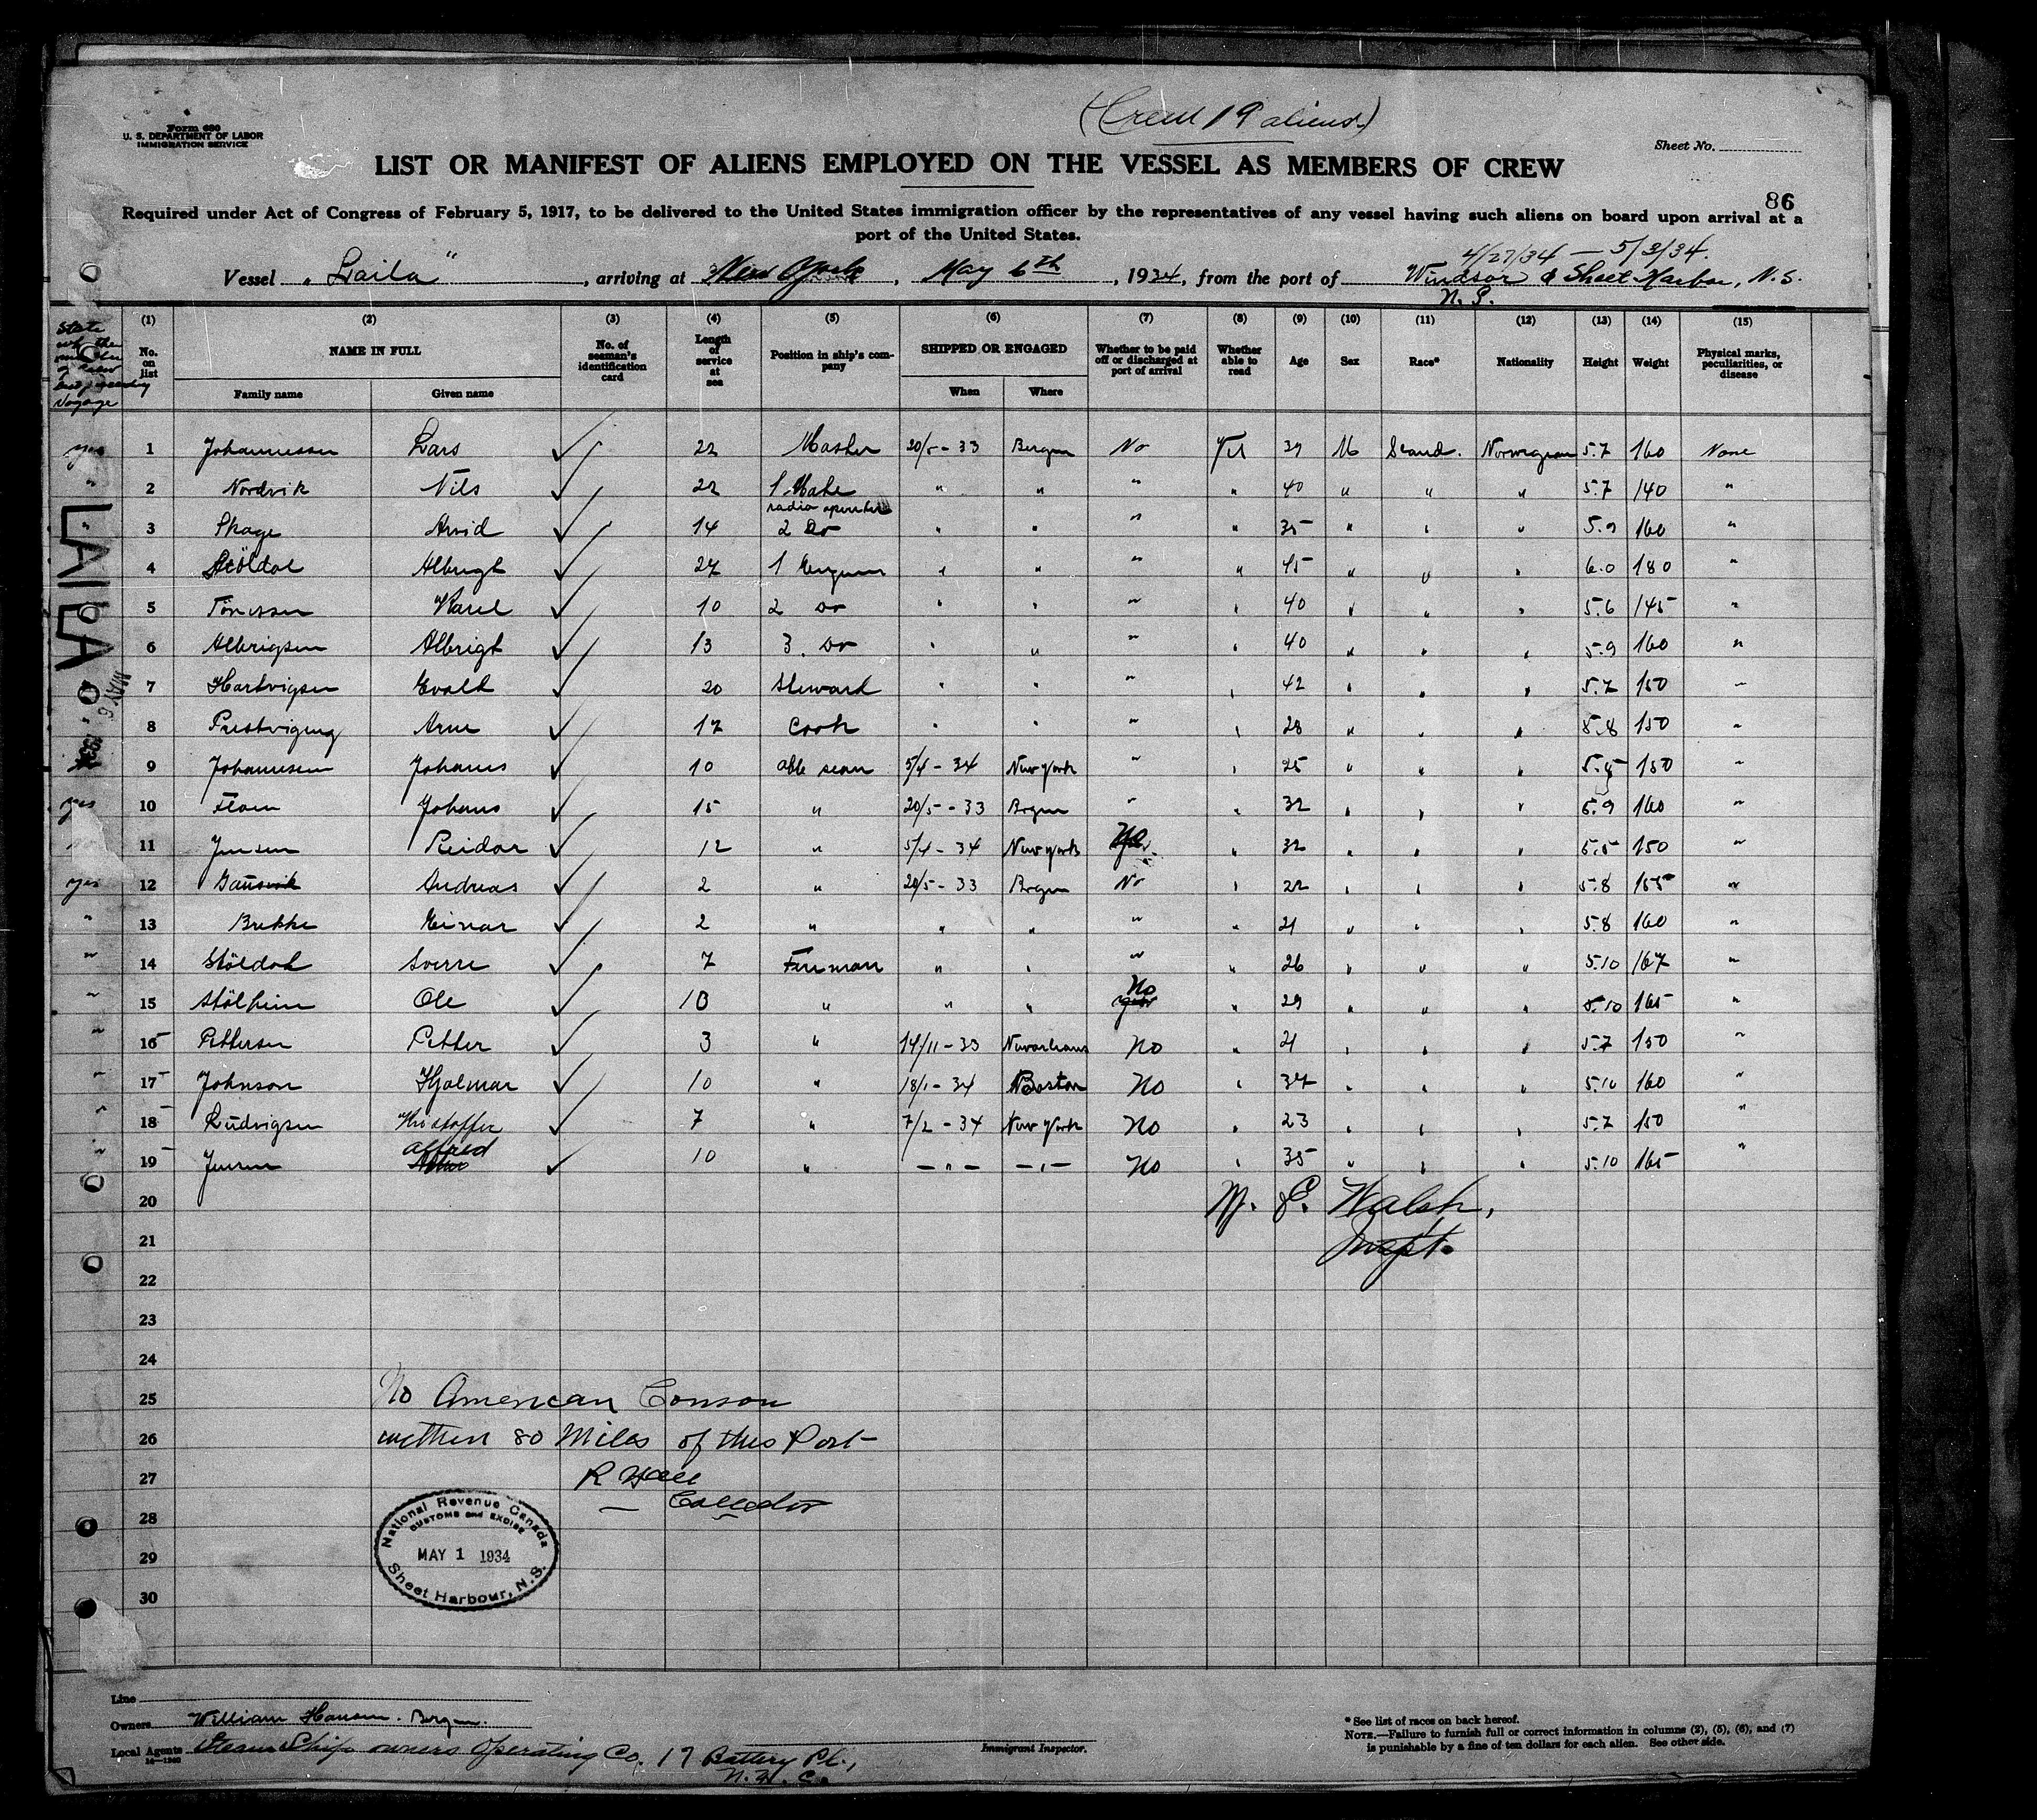 (Crew 19 aliens)
Form 680
U. S. DEPARTMENT OF LABOR
IMMIGRATION SERVICE
Sheet No.
LIST OR MANIFEST OF ALIENS EMPLOYED ON THE VESSEL AS MEMBERS OF CREW
86
Required under Act of Congress of February 5, 1917, to be delivered to the United States immigration officer by the representatives of any vessel having such aliens on board upon arrival at a
port of the United States.
4/27/34 — 5/3/34.
Vessel "Laila", arriving at New York, May 6th, 1934, from the port of Windsor & Sheet Harbor, N.S.
N.S.
State whether member of crew last preceding voyage
(1) (2) (3) (4) (5) (6) (7) (8) (9) (10) (11) (12) (13) (14) (15)
No. on list NAME IN FULL No. of seaman's identification card Length of service at sea Position in ship's company SHIPPED OR ENGAGED Whether to be paid off or discharged at port of arrival Whether able to read Age Sex Race* Nationality Height Weight Physical marks, peculiarities, or disease
Family name Given name When Where
yes 1 Johannessen Lars ✓ 22 Master 20/5-33 Bergen No Yes 39 M Scand. Norwegian 5.7 160 None
" 2 Nordvik Nils ✓ 22 1 Mate " " " " 40 " " " 5.7 140 "
radio operator
" 3 Skage Arvid ✓ 14 2 Do " " " " 35 " " " 5.9 160 "
4 Albrigt ✓ 27 1 Engineer " " " " 45 " " " 6.0 180 "
5 Tönessen Karel ✓ 10 2 Do " " " " 40 " " " 5.6 145 "
6 Albrigsen Albrigt ✓ 13 3. Do " " " " 40 " " " 5.9 160 "
7 Hartvigsen Evald ✓ 20 Steward " " " " 42 " " " 5.7 150 "
8 Arne ✓ 17 Cook " " " " 28 " " " 5.8 150 "
9 Johannesen Johans ✓ 10 able seam 5/4-34 New York " " 25 " " " 5.5 150 "
yes 10 Flom Johans ✓ 15 " 20/5-33 Brgen " " 32 " " " 5.9 160 "
11 Jensen Reidar ✓ 12 " 5/4-34 New York No " 32 " " " 5.5 150 "
yes 12 Andreas ✓ 2 " 20/5-33 Brgen No " 22 " " " 5.8 155 "
" 13 Brekke Einar ✓ 2 " " " " " 21 " " " 5.8 160 "
" 14 Stöldal Sverre ✓ 7 Fireman " " " " 26 " " " 5.10 167 "
" 15 Stölheim Ole ✓ 10 " " " No " 29 " " " 5.10 165 "
" 16 Pettersen Petter ✓ 3 " 14/11-33 Neworleans No " 21 " " " 5.7 150 "
" 17 Johnson Hjalmar ✓ 10 " 18/1-34 Boston No " 34 " " " 5.10 160 "
" 18 Ludvigsen Kristoffer ✓ 7 " 7/2-34 New York No " 23 " " " 5.7 150 "
" 19 Jensen Alfred ✓ 10 " —"— —"— No " 35 " " " 5.10 165 "
20
W. E. Walsh,
21
Inspt.
22
23
24
25 No American Conson
26 within 80 Miles of this Port
27 R Hall
Collector
28
29
30
LAILA
MAY 6 1934
National Revenue Canada
CUSTOMS and EXCISE
MAY 1 1934
Sheet Harbour, N.S.
Line
Owners William Hansen. Bergen.
Local Agents Steam Ship owners Operating Co. 17 Battery Pl.,
N.Y.C.
Immigrant Inspector.
* See list of races on back hereof.
NOTE.—Failure to furnish full or correct information in columns (2), (5), (6), and (7)
is punishable by a fine of ten dollars for each alien. See other side.